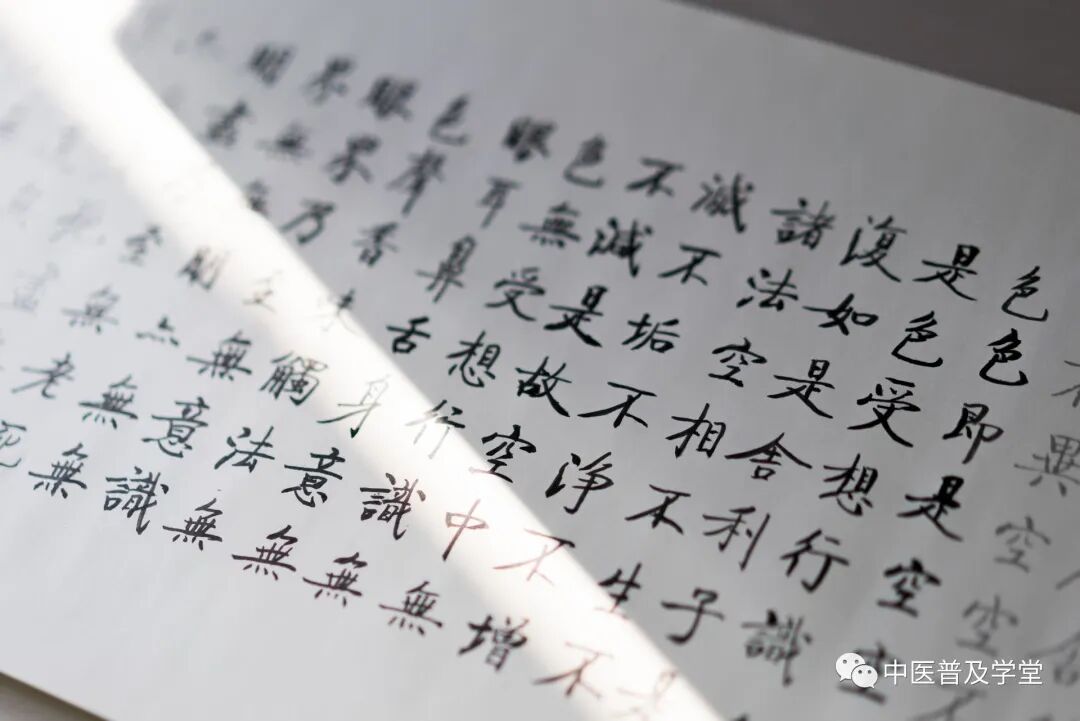 不異空空
色色即是空空
是色受想行識
復如是舍利子是
諸法空相不生不
滅不垢不淨不增
不減是故空中無
色無受想行識無
眼耳鼻舌身意無
色聲香味觸法無
眼界乃至無意識
界無無明亦無無
明盡至無老死
中医普及学堂